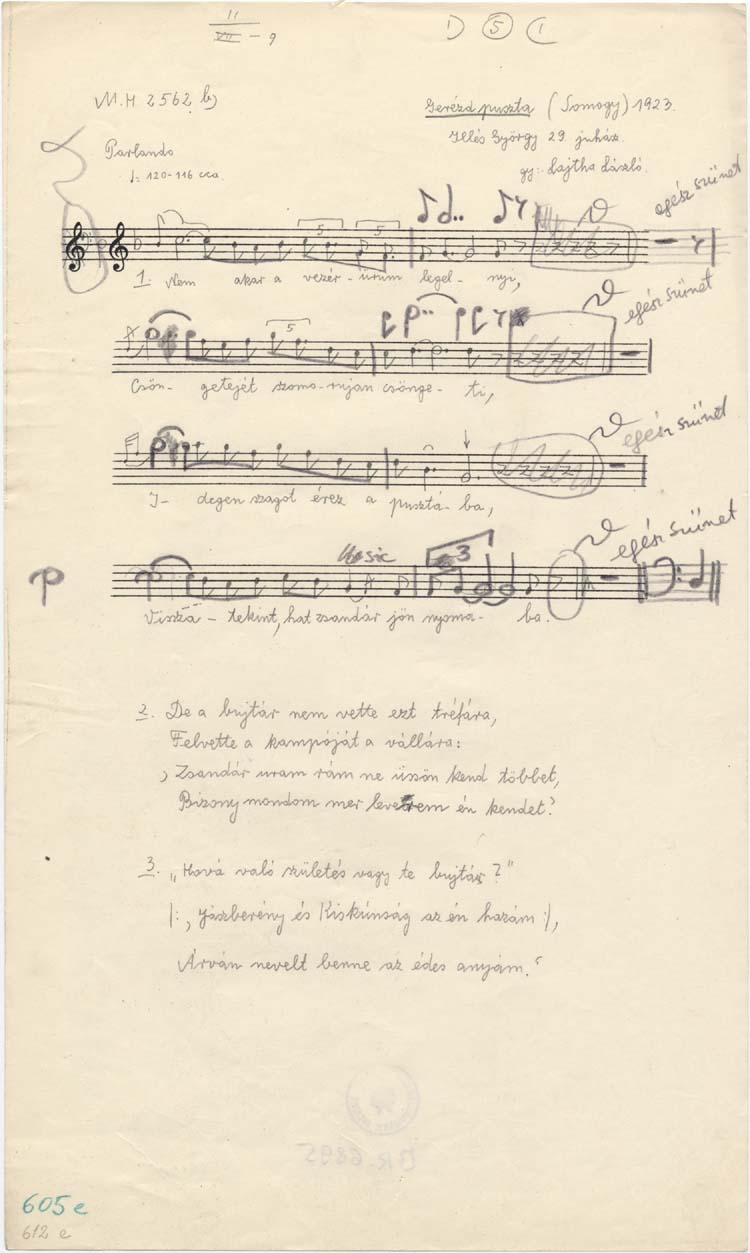 II
VII - 9
1) (5) (1
M.H. 2562 b)
Gerézdpuszta (Somogy) 1923.
Illés György 29. juhász.
gy.: Lajtha László.
Parlando
♩= 120-116 cca.
egész szünet
5 5
1. Nem akar a vezér-ürüm legel- nyi,
egész szünet
5
Csön- getejét szomo-rujan csönge- ti,
egész szünet
I- degen szagot érez a pusztá- ba,
egész szünet
sic 3
p
Vissza- tekint, hat zsandár jön nyoma- ba.
2. De a bujtár nem vette ezt tréfára,
Felvette a kampóját a vállára:
, Zsandár uram rám ne üssön kend többet,
Bizony mondom mer leverem én kendet.'
3. „Hová való születés vagy te bujtár?"
|: ‚Jászberény és Kiskúnság az én hazám :|,
Árván nevelt benne az édes anyám.'
BR. 6895
605 e
612 e